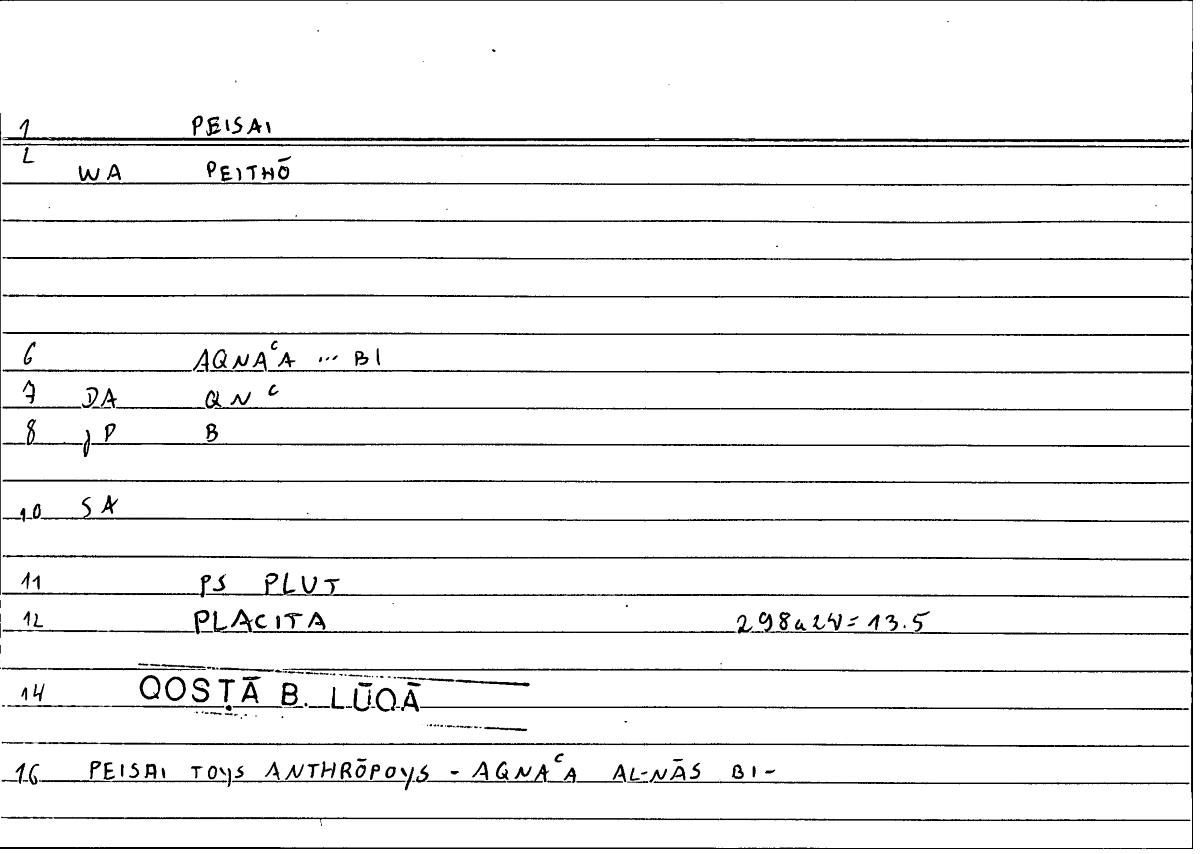 1 PEISAI
2 WA PEITHŌ
6 AQNAᶜA ... BI
7 DA QNᶜ
8 JP B
10 SA
11 PS PLUT
12 PLACITA 298a24 = 13.5
14 QOSṬĀ B. LŪQĀ
16 PEISAI TOYS ANTHRŌPOYS - AQNAᶜA AL-NĀS BI-